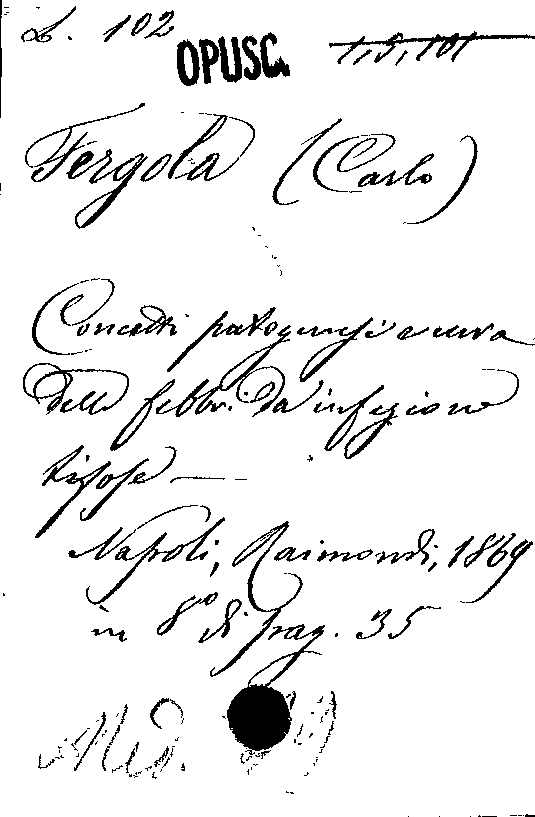 L. 102
OPUSC. 1, 9, 101
Fergola (Carlo)
Concetti patogenesi e cura
delle febbri da infezione
tifose —
Napoli, Raimondi, 1869
in 8° di pag. 35
Med.